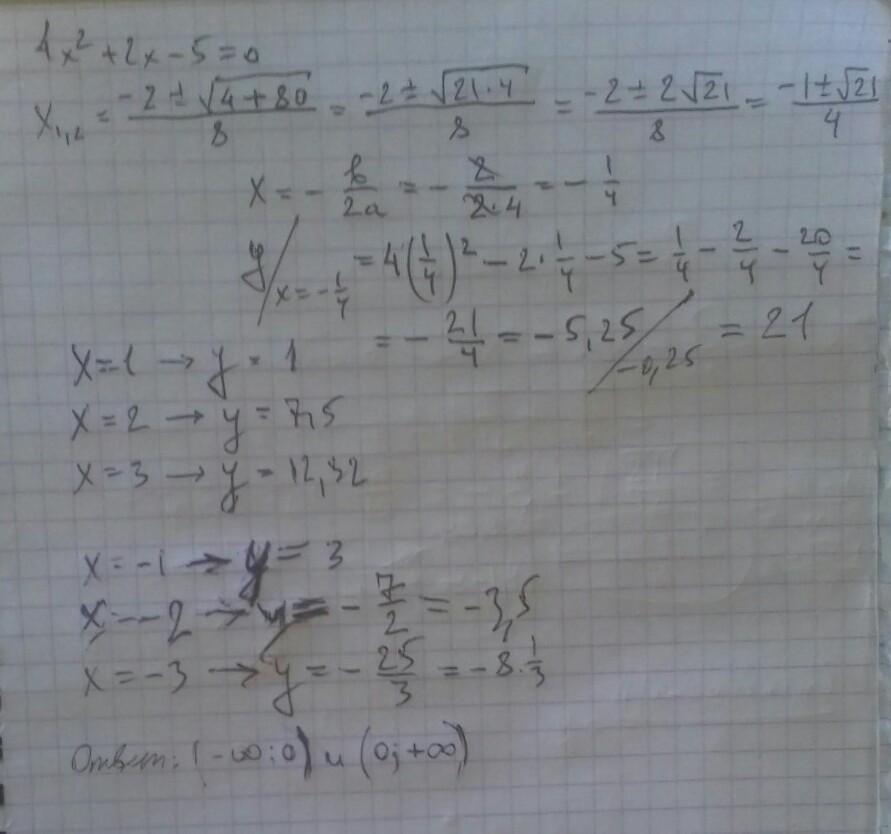 4x² + 2x - 5 = 0
x₁,₂ = (-2 ± √(4 + 80))/8 = (-2 ± √(21·4))/8 = (-2 ± 2√21)/8 = (-1 ± √21)/4
x = - b/2a = - 2/(2·4) = - 1/4
y/x=-1/4 = 4(1/4)² - 2·1/4 - 5 = 1/4 - 2/4 - 20/4 =
= - 21/4 = - 5,25/-0,25 = 21
x=1 → y = 1
x = 2 → y = 7,5
x = 3 → y = 12,32
x = -1 → y = 3
x = -2 → y = - 7/2 = -3,5
x = -3 → y = - 25/3 = -8·1/3
Ответ: (-∞;0) и (0;+∞)